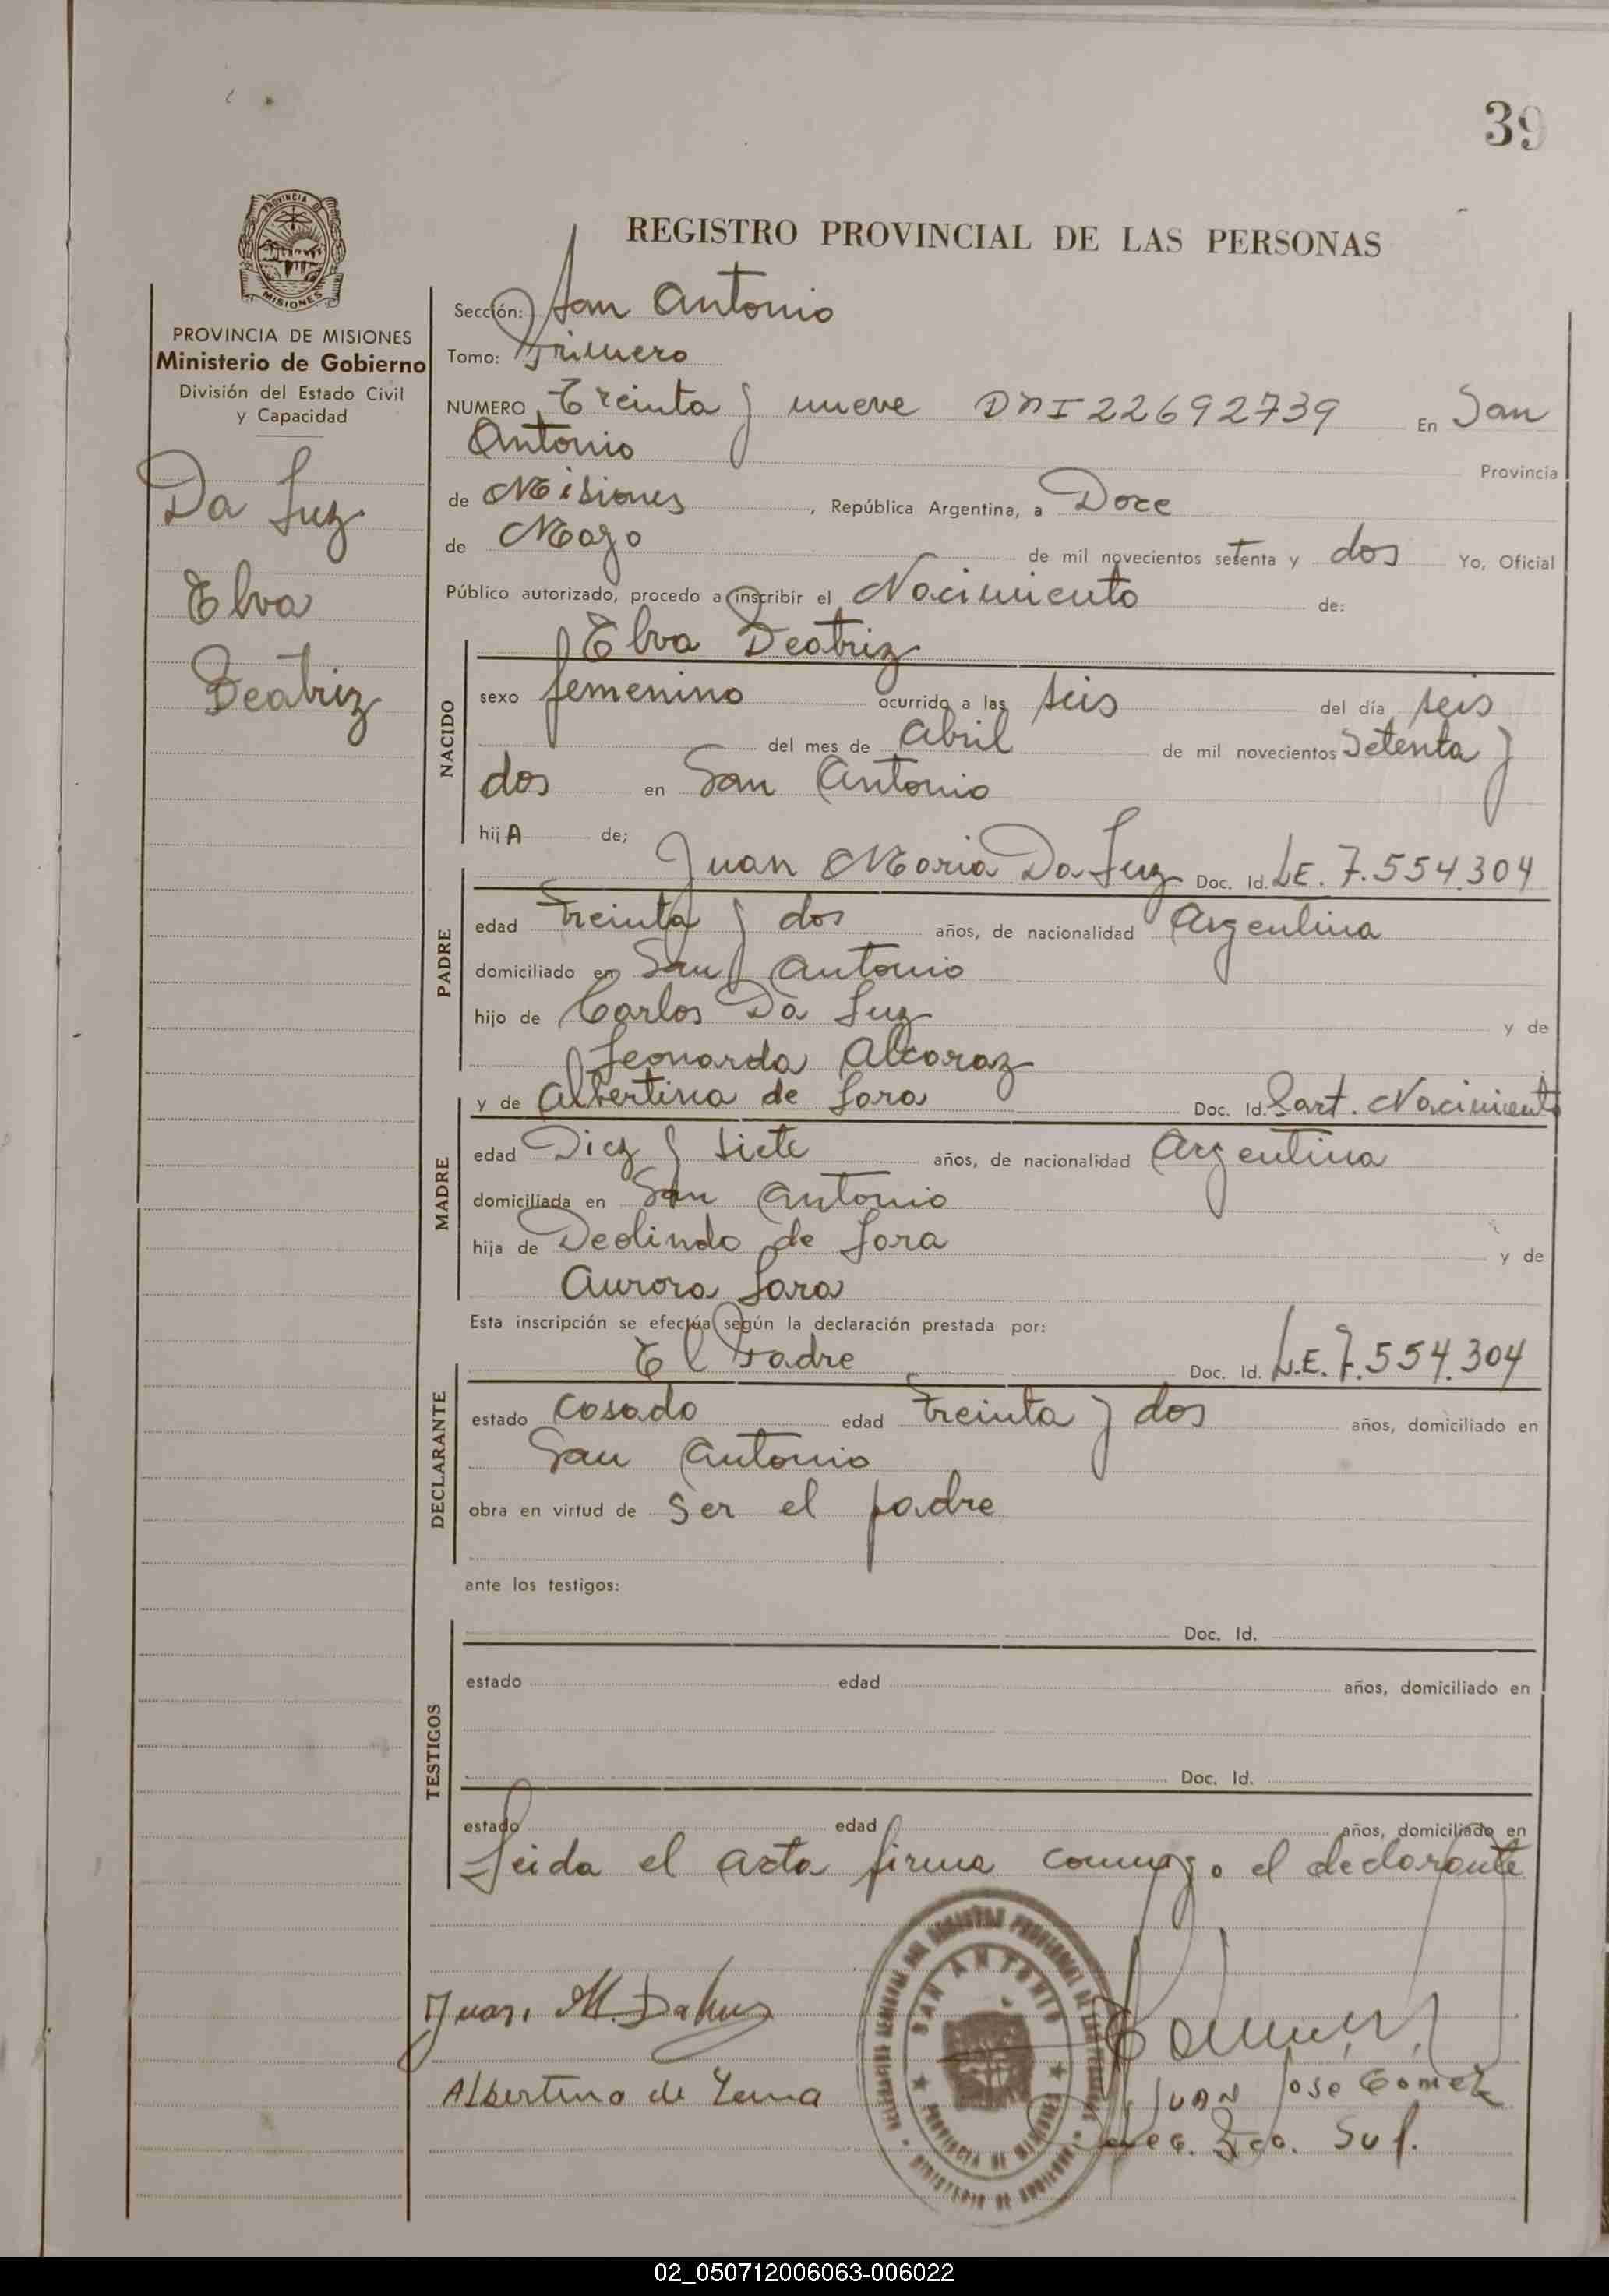 39
REGISTRO PROVINCIAL DE LAS PERSONAS
PROVINCIA DE
MISIONES
PROVINCIA DE MISIONES
Ministerio de Gobierno
División del Estado Civil
y Capacidad
Da Luz
Elva
Beatriz
Sección: San Antonio
Tomo: Primero
NUMERO Treinta y nueve DNI 22692739 En San
Antonio Provincia
de Misiones, República Argentina, a Doce
de Mayo de mil novecientos setenta y dos Yo, Oficial
Público autorizado, procedo a inscribir el Nacimiento de:
Elva Beatriz
NACIDO
sexo femenino ocurrido a las seis del día seis
del mes de Abril de mil novecientos Setenta y
dos en San Antonio
hijA de;
Juan Maria Da Luz Doc. Id. LE. 7.554.304
PADRE
edad treinta y dos años, de nacionalidad Argentina
domiciliado en San Antonio
hijo de Carlos Da Luz y de
Leonarda Alcaraz
y de Albertina de Lara Doc. Id. Part. Nacimiento
MADRE
edad Diez y siete años, de nacionalidad Argentina
domiciliada en San Antonio
hija de Deolindo de Lara y de
Aurora Lara
Esta inscripción se efectúa según la declaración prestada por:
El Padre Doc. Id. L.E. 7.554.304
DECLARANTE
estado Casado edad treinta y dos años, domiciliado en
San Antonio
obra en virtud de Ser el padre
ante los testigos:
Doc. Id.
TESTIGOS
estado edad años, domiciliado en
Doc. Id.
estado edad años, domiciliado en
Leida el acta firma conmigo el declarante
SAN ANTONIO
PROVINCIA DE MISIONES
MINISTERIO DE GOBIERNO
Juan M. Daluz
Albertina de Lema
JUAN Jose Gomez
02_050712006063-006022